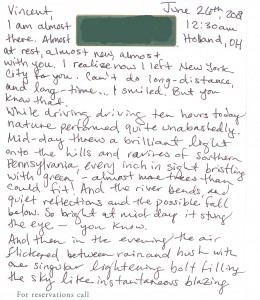 Vincent,
June 26th, 2008
I am almost
12:30am
there. Almost
Holland, OH
at rest, almost new, almost
with you. I realize now I left New York
City for you. Can't do long-distance,
and long-time... I smiled. But you
knew that.
While driving driving ten hours today
nature performed quite unabashedly.
Mid-day threw a brilliant light
onto the hills and ravines of southern
Pennsylvania, every inch in sight bristling
with green - almost more takes than
could fit! And the river bends,
quiet reflections and the possible fall
below. So bright at mid day it stung
the eye - you know.
And then in the evening the air
flickered between rain and hush with
one singular lightening bolt filling
the sky like instantaneous blazing
For reservations call